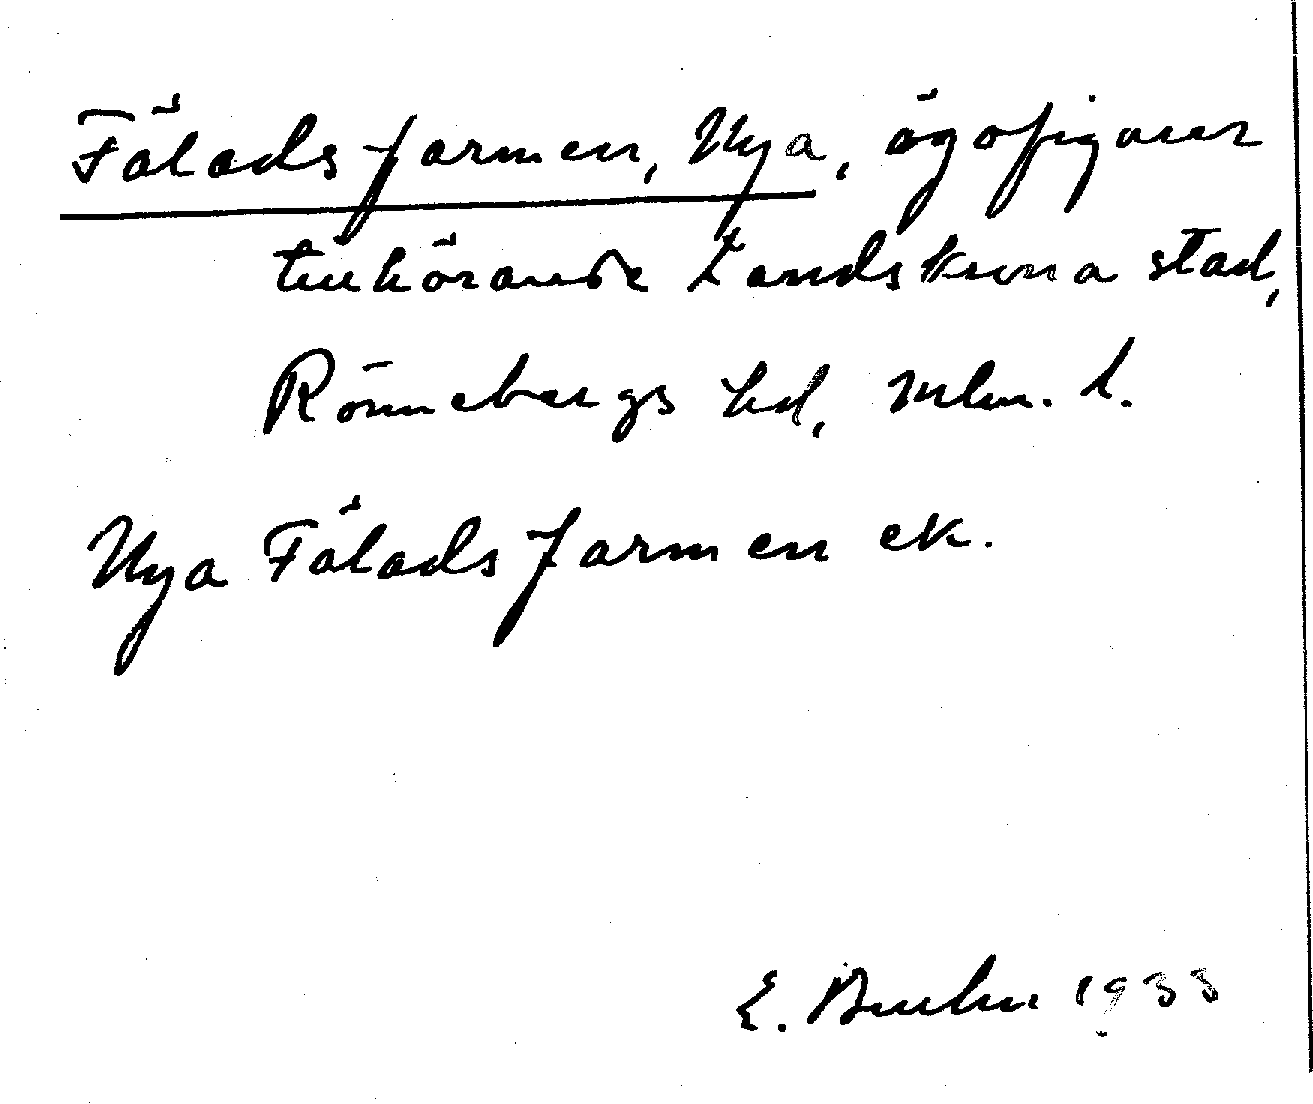 Fäladsfarmen, Nya, ägofigurer
tillhörande Landskrona stad,
Rönnebergs hd, Mlm. l.
Nya Fäladsfarmen ek.
E. 1933